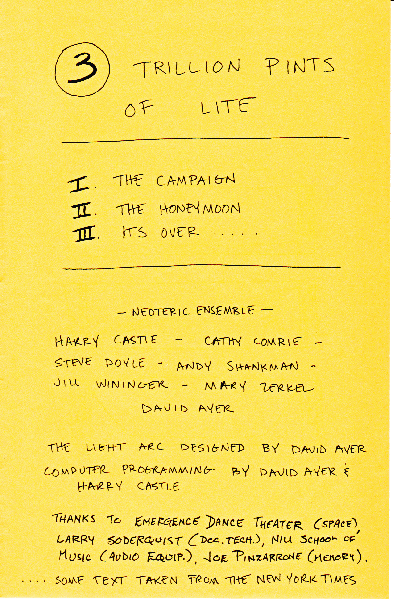 3 TRILLION PINTS
OF LITE
I. THE CAMPAIGN
II. THE HONEYMOON
III. ITS OVER .....
— NEOTERIC ENSEMBLE —
HARRY CASTLE - CATHY COMRIE -
STEVE DOYLE - ANDY SHANKMAN -
JILL WININGER - MARY ZERKEL
DAVID AYER
THE LIGHT ARC DESIGNED BY DAVID AYER
COMPUTER PROGRAMMING BY DAVID AYER &
HARRY CASTLE
THANKS TO EMERGENCE DANCE THEATER (SPACE),
LARRY SODERQUIST (DOC. TECH.), NIU SCHOOL OF
MUSIC (AUDIO EQUIP.), JOE PINZARRONE (MEMORY).
.... SOME TEXT TAKEN FROM THE NEW YORK TIMES